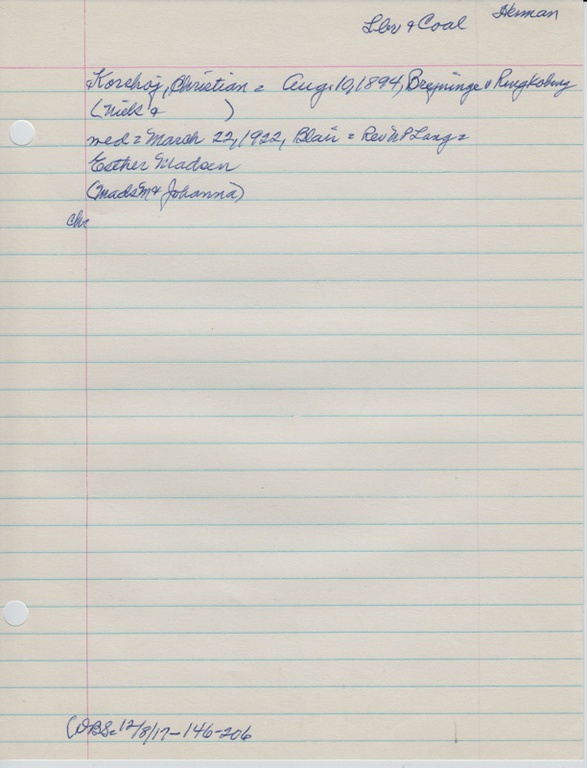 Herman
Lbr & Coal
Korshoj, Christian = Aug. 10, 1894, Ringkobing
(Niels & )
wed = March 22, 1922, Blair = Rev N P Lang =
Esther Madsen
(Mads M & Johanna)
chr
(DBS = 12/8/17-146-206